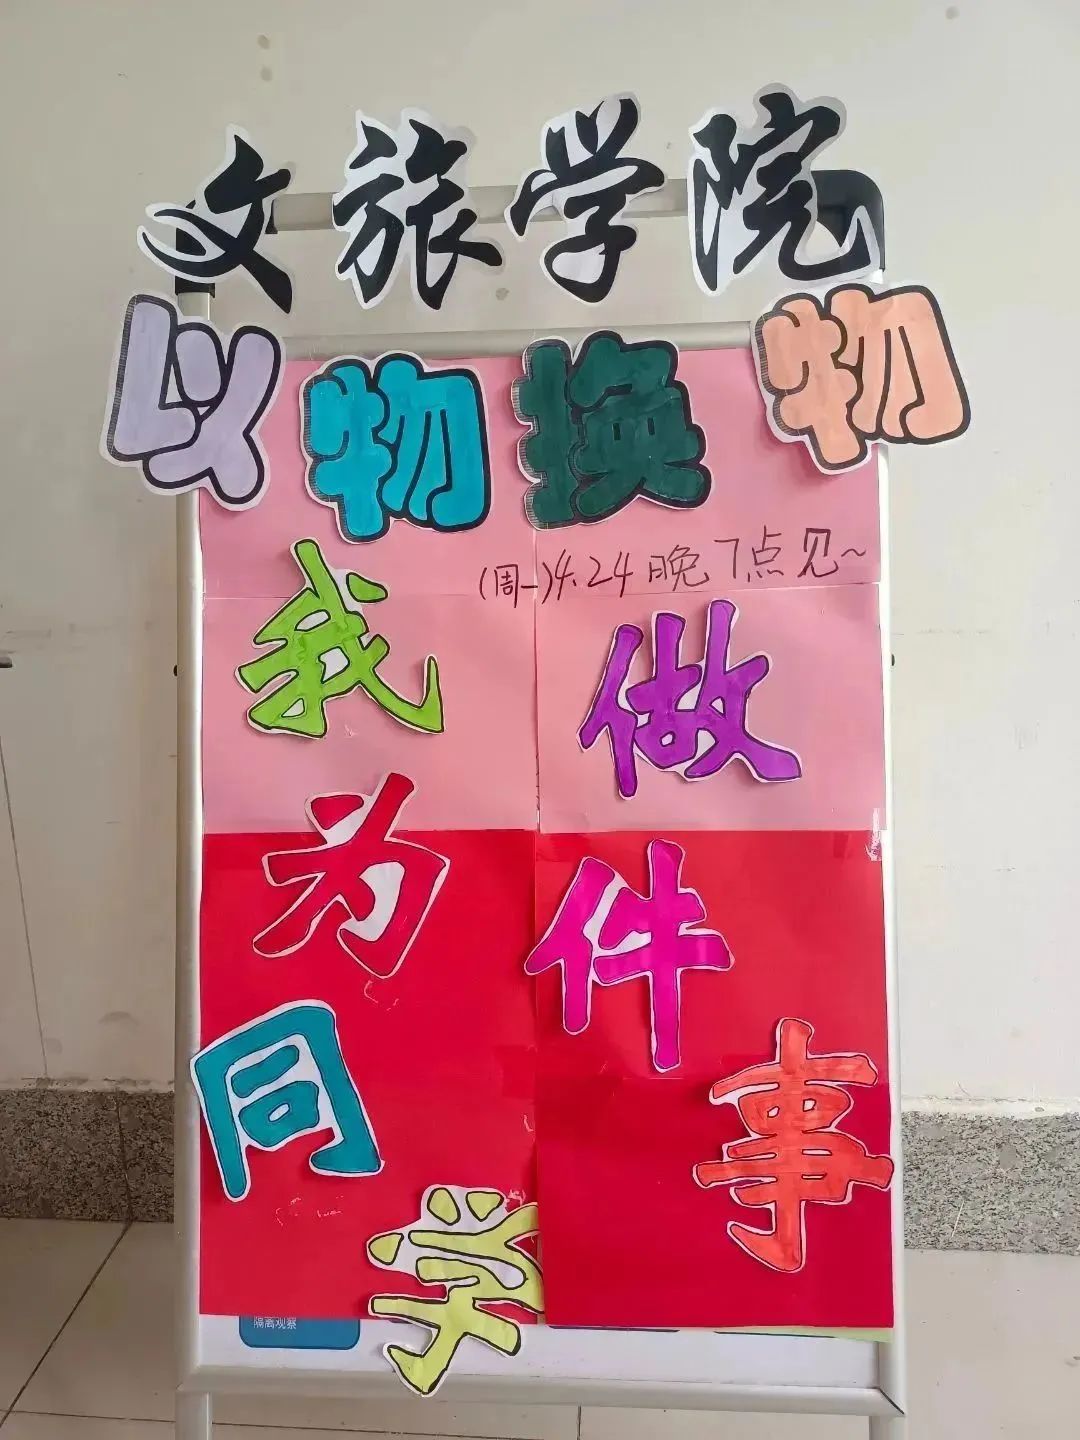 文旅学院
以物换物
(周一)4.24晚7点见~
我为同学
做件事
隔离观察